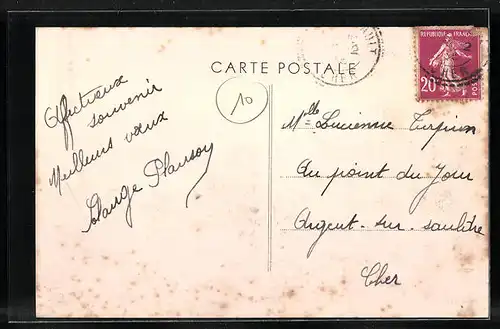 CARTE POSTALE
REPUBLIQUE FRANCAISE
20
POSTES
10
Affectueux
souvenir
Meilleurs vœux
Mlle Lucienne Turpin
Au point du Jour
Argent-sur-sauldre
Cher